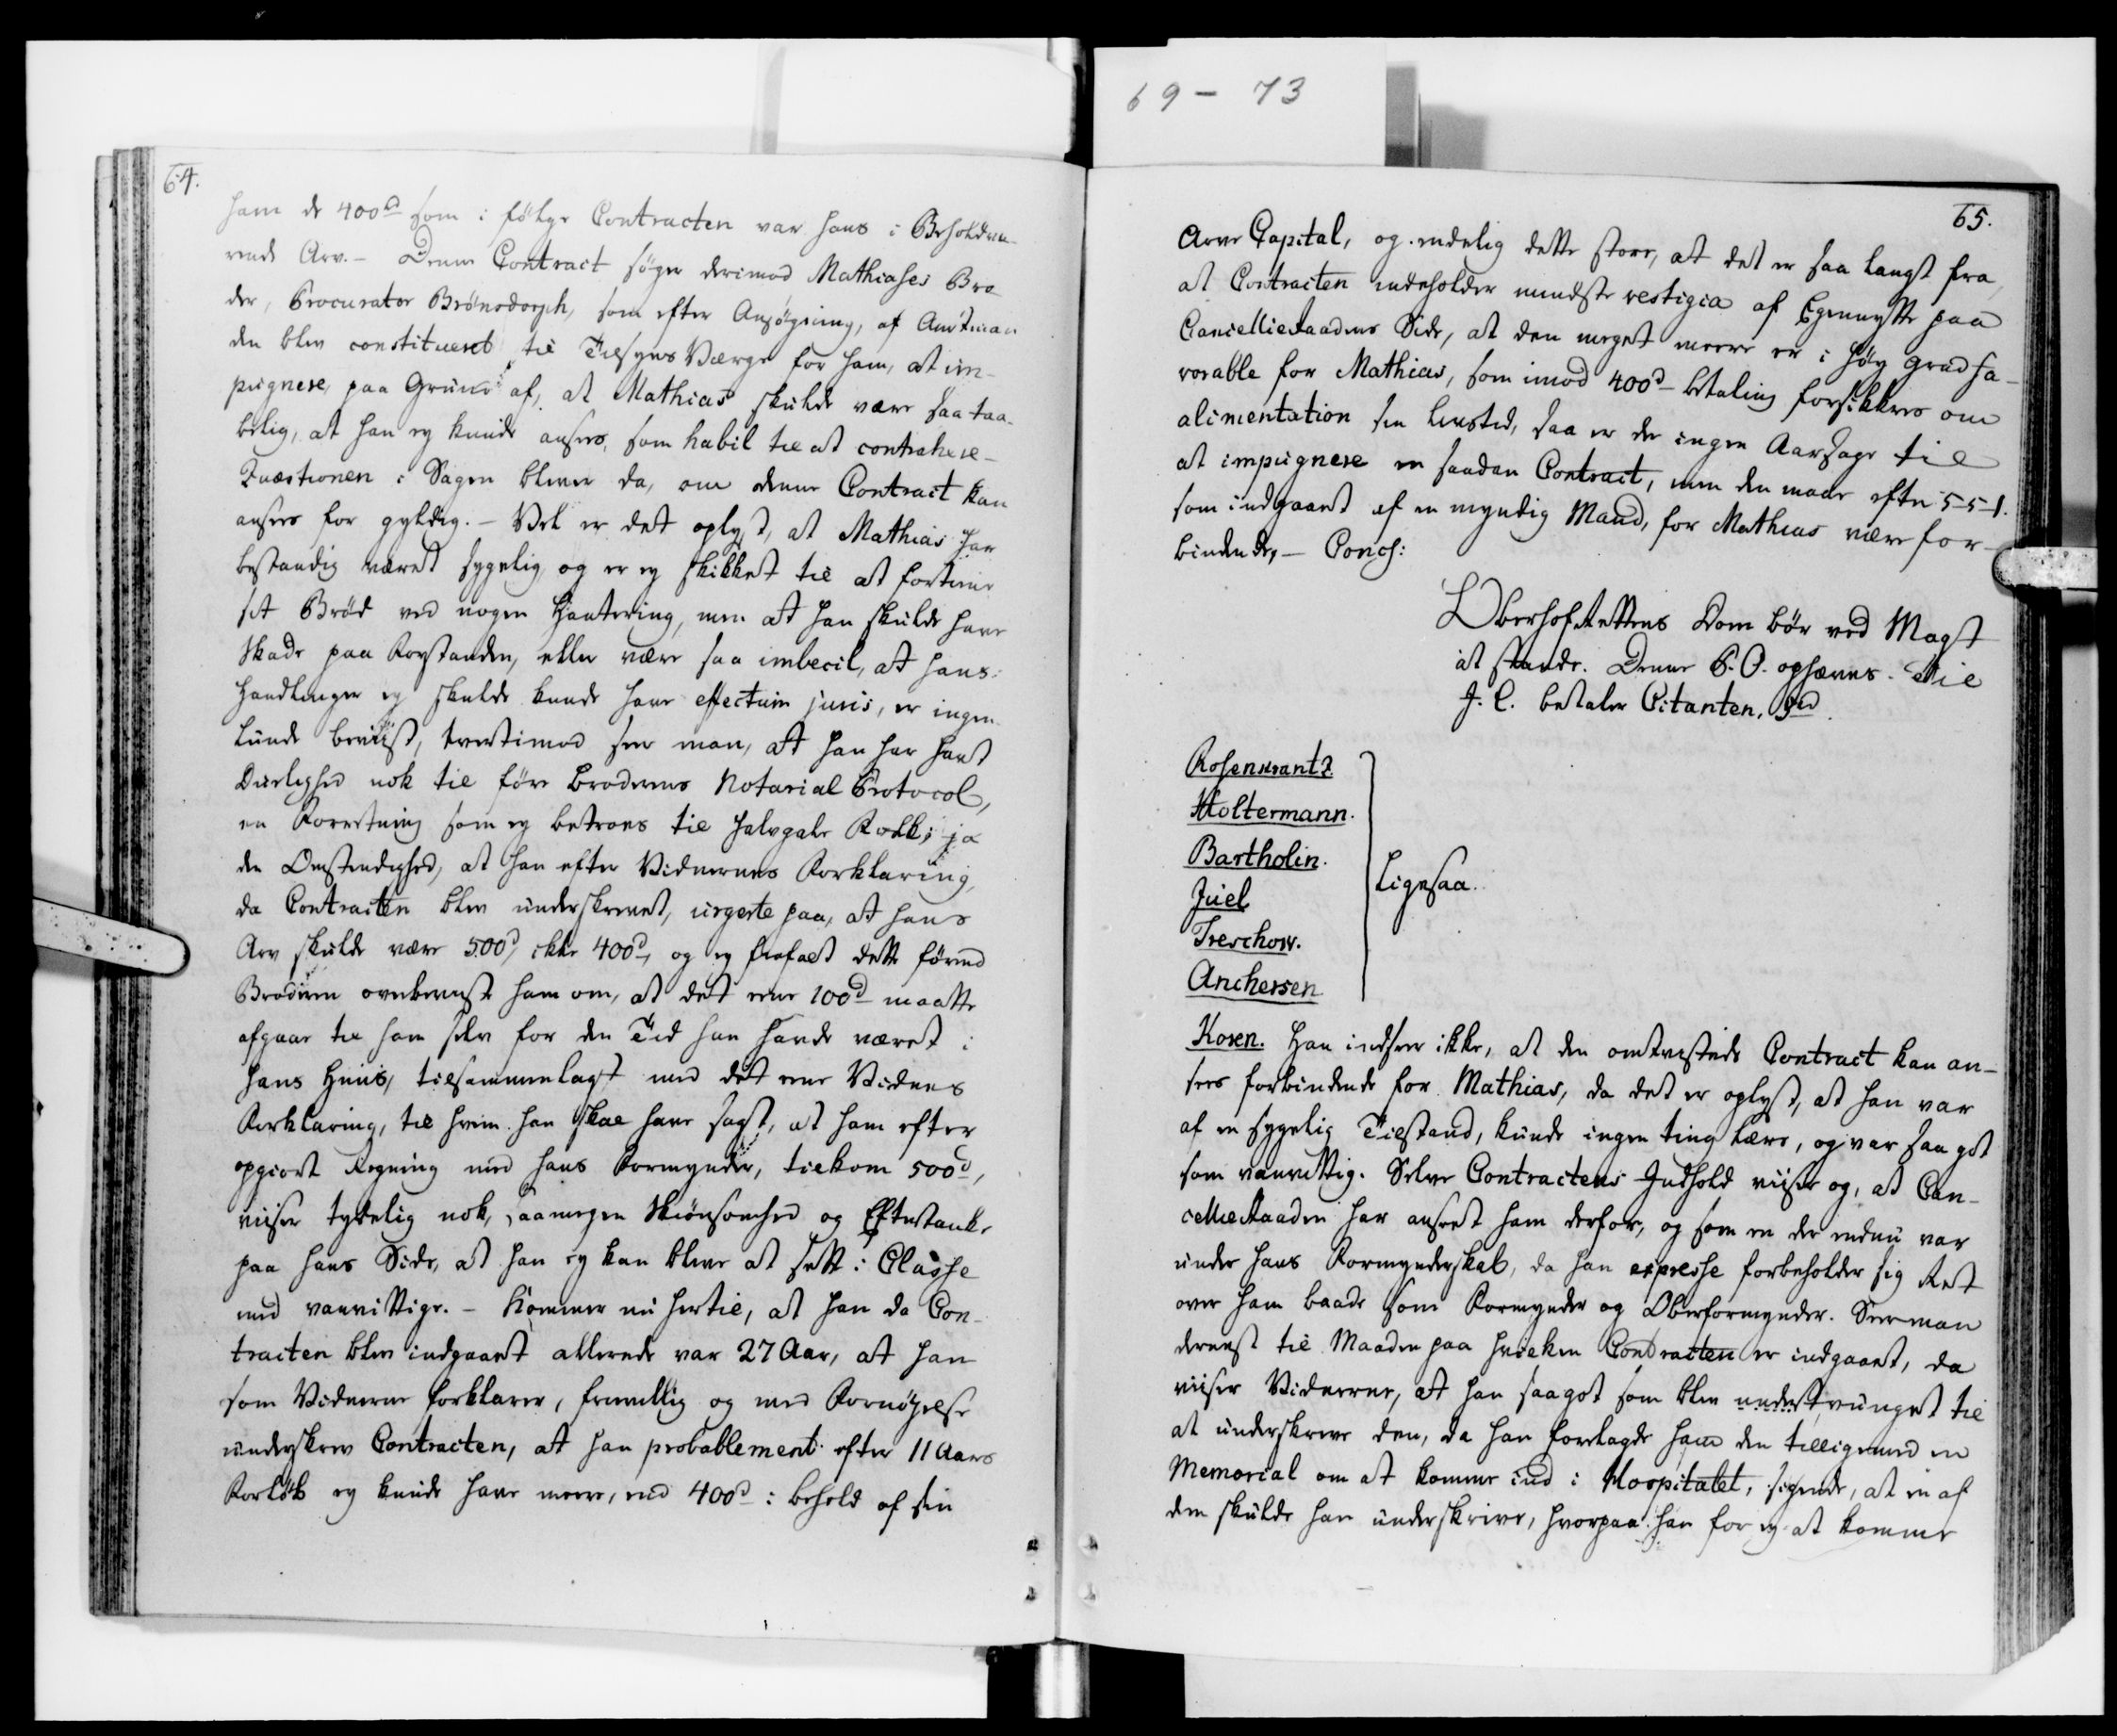 69 - 73
64.
ham de 400d som i følge Contracten var hans i Beholdva-
rende Arv. - Denne Contract søger derimod Mathiases Bro-
der, Procurator Brønsdorph, som efter Ansøgning, af Amtman
den blev constitueret til Tilsyns Værge for ham, at im-
pugnere, paa Grund af, at Mathias skulde være saa taa-
belig, at han ey kunde ansees, som habil til at contrahere -
Quæstionen i Sagen bliver da, om denne Contract kan
ansees for gyldig. - Vel er det oplyst, at Mathias har
bestandig været sygelig og er ey skikket til at fortiene
sit Brød ved nogen Handtering, men at han skulde have
Skade paa Forstanden, eller være saa imbecil, at hans
Handlinger ey skulde kunde have effectum juris, er ingen-
lunde beviist, tvertimod seer man, at han har havt
Duelighed nok til føre Broderens Notarial Protocol,
en Forretning som ey betroes til halvgale Folk; ja
den Omstændighed, at han efter Vidnernes Forklaring,
da Contracten blev underskrevet, urgerte paa, at hans
Arv skulde være 500d, ikke 400d, og ey frafalt dette førend
Broderen overbeviiste ham om, at det ene 100d maatte
afgaae til ham selv for den Tid han havde været i
hans Huus, tilsammenlagt med det ene Vidnes
Forklaring, til hvem han skal have sagt, at ham efter
opgiort Regning med hans Formynder, tilkom 500d,
viiser tydelig nok, saamegen Skiønsomhed og Eftertanke
paa hans Side, at han ey kan blive at sætte i Classe
med vanvittige. - Kommer nu hertil, at han da Con-
tracten blev indgaaet allerede var 27 Aar, at han
som Vidnerne forklarer, frivillig og med Fornøyelse
underskrev Contracten, at han probablement efter 11 Aars
Forløb ey kunde have meere, end 400d i behold af sin
65.
Arve Capital, og endelig dette store, at det er saa langt fra,
at Contracten indeholder mindste vestigia af Egennytte paa
CancellieRaadens Side, at den meget meere er i høy grad fa-
vorable for Mathias, som imod 400d betaling forsikkres om
alimentation sin Livstid, saa er der ingen Aarsage til
at impugnere en saadan Contract, men den maae efter 5-5-1.
som indgaaet af en myndig Mand, for Mathias være for-
bindende, - Concl:
OberhofRettens Dom bør ved Magt
at stande. Denne P. O. ophæves. Til
J. C. betaler Citanten, 3rd
Rosenkrantz.
Woltermann.
Bartholin.
Juel
Treschow.
Anchersen.
Ligesaa.
Kosen. Han indseer ikke, at den omtvistede Contract kan an-
sees forbindende for Mathias, da det er oplyst, at han var
af en sygelig Tilstand, kunde ingen ting lære, og var saa got
som vanvittig. Selve Contractens Indhold viiser og, at Can-
cellieRaaden har anseet ham derfor, og som en der endnu var
under hans Formynderskab, da han expresse forbeholder sig Ret
over ham baade som Formynder og Oberformynder. Seer man
dernæst til Maaden paa hvilken Contracten er indgaaet, da
viiser Vidnerne, at han saagot som blev understvunget til
at underskrive den, da han forelagde ham den tilligemed en
Memorial om at komme ind i Hospitalet, sigende, at en af
dem skulde han underskrive, hvorpaa han for ey at komme